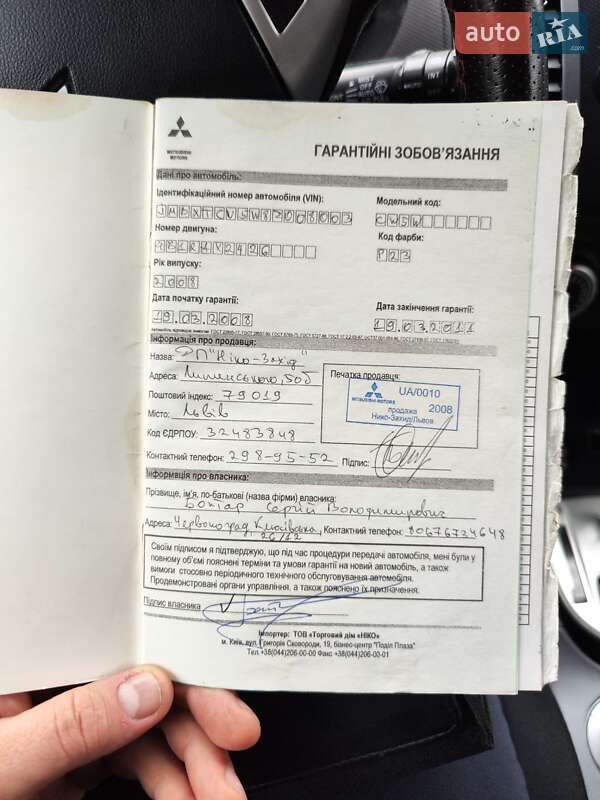 auto RIA.com
MIST
OFF
INT
MITSUBISHI MOTORS
ГАРАНТІЙНІ ЗОБОВ'ЯЗАННЯ
Дані про автомобіль:
Ідентифікаційний номер автомобіля (VIN):
Модельний код:
JMBXTCW5W8Z008003
CW5W
Номер двигуна:
Код фарби:
P23
Рік випуску:
2008
Дата початку гарантії:
Дата закінчення гарантії:
19.03.2008
19.03.2011
Інформація про продавця:
Назва: РП "Ніко-Захід"
Адреса: Липинського, 50б
Поштовий індекс: 79019
Місто: Львів
Код ЄДРПОУ: 32483848
Контактний телефон: 298-95-52 Підпис:
Печатка продавця:
UA/0010
MITSUBISHI MOTORS
продажа 2008
Нико-Захид/Львов
Інформація про власника:
Прізвище, ім'я, по-батькові (назва фірми) власника:
Сергій Володимирович
Адреса: Червоноград, Клюївська, Контактний телефон: 80676734648
26/12
Своїм підписом я підтверджую, що під час процедури передачі автомобіля, мені були у
повному об'ємі пояснені терміни та умови гарантії на новий автомобіль, а також
вимоги стосовно періодичного технічного обслуговування автомобіля.
Продемонстровані органи управління, а також пояснено їх призначення.
Підпис власника
Імпортер: ТОВ «Торговий дім «НІКО»
м. Київ, вул. Григорія Сковороди, 19, бізнес-центр "Поділ Плаза"
Тел.+38(044)206-00-00 Факс +38(044)206-00-01